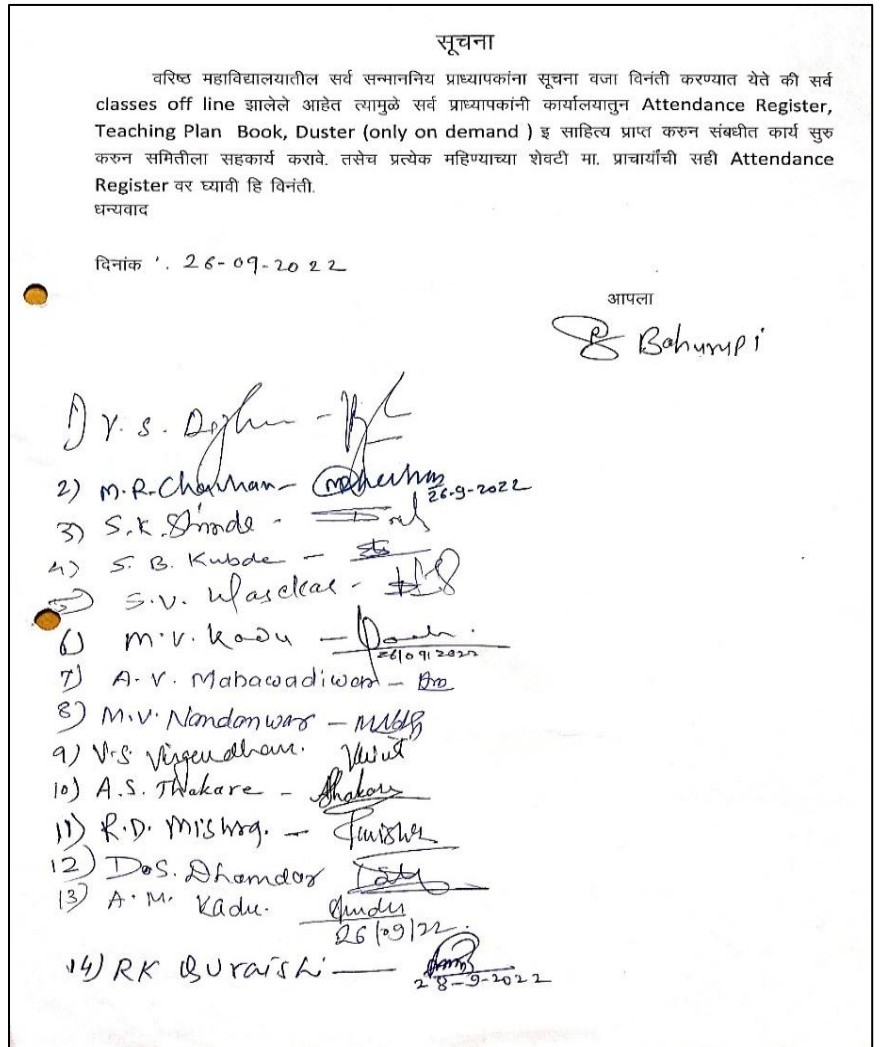 सूचना
वरिष्ठ महाविद्यालयातील सर्व सन्माननिय प्राध्यापकांना सूचना वजा विनंती करण्यात येते की सर्व
classes off line झालेले आहेत त्यामुळे सर्व प्राध्यापकांनी कार्यालयातुन Attendance Register,
Teaching Plan Book, Duster (only on demand ) इ साहित्य प्राप्त करुन संबधीत कार्य सुरु
करुन समितीला सहकार्य करावे. तसेच प्रत्येक महिण्याच्या शेवटी मा. प्राचार्यांची सही Attendance
Register वर घ्यावी हि विनंती.
धन्यवाद
दिनांक : 26-09-2022
आपला
Bahurupi
1) V. S.
2) M.R. Chauhan - 26-9-2022
3) S.K. Shinde -
4) S. B. Kubde -
5) S.V. -
6) M.V. Kadu - 26/09/2022
7) A. V. Mabawadiwar -
8) M.V. Nandanwar -
9) V.S.
10) A.S. Thakare - Thakare
11) R.D. Mishra. -
12) D.S. Dhamdar
13) A. M. Kadu.
26/09/22.
14) RK Quraishi — 28-9-2022